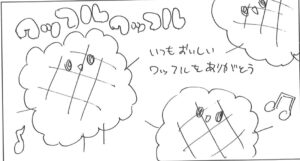 ワッフル ワッフル
いつもおいしい
ワッフルをありがとう